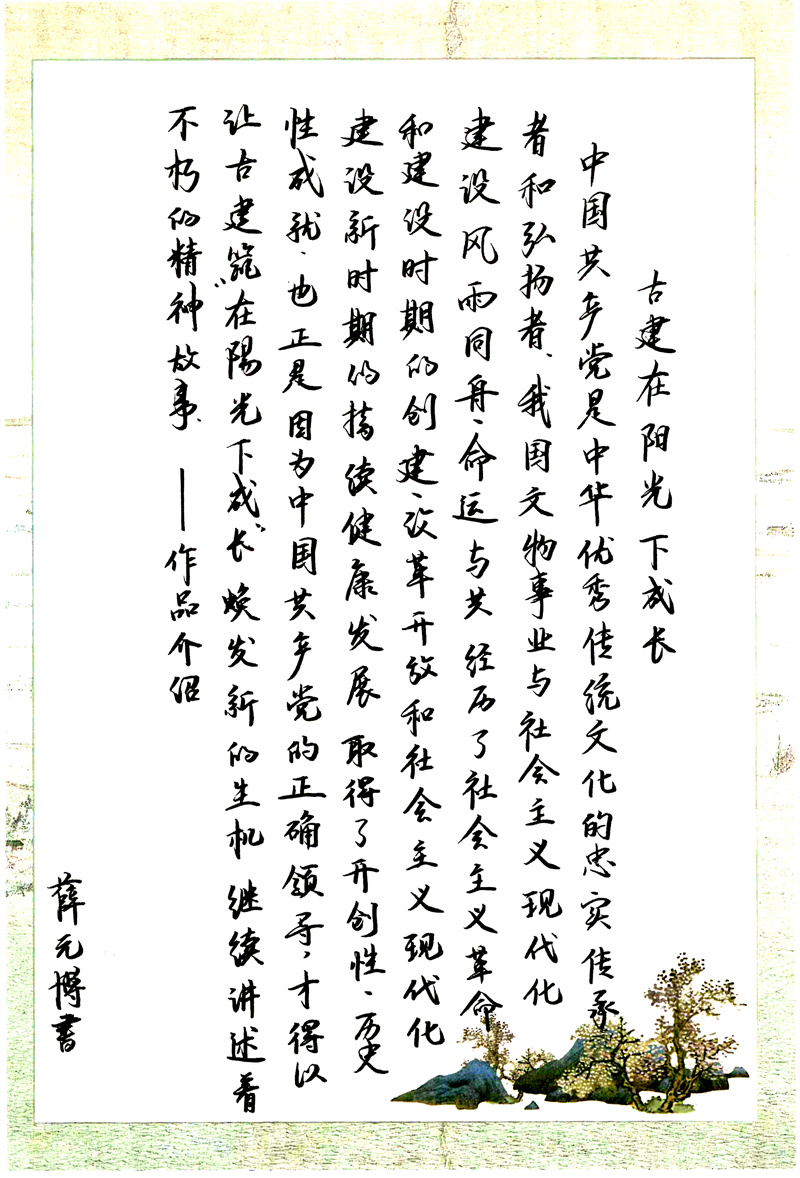 古建在阳光下成长
中国共产党是中华优秀传统文化的忠实传承
者和弘扬者、我国文物事业与社会主义现代化
建设风雨同舟、命运与共 经历了社会主义革命
和建设时期的创建、改革开放和社会主义现代化
建设新时期的持续健康发展 取得了开创性、历史
性成就、也正是因为中国共产党的正确领导，才得以
让古建筑“在陽光下成长”焕发新的生机 继续讲述着
不朽的精神故事、 ——作品介绍
薛元博書